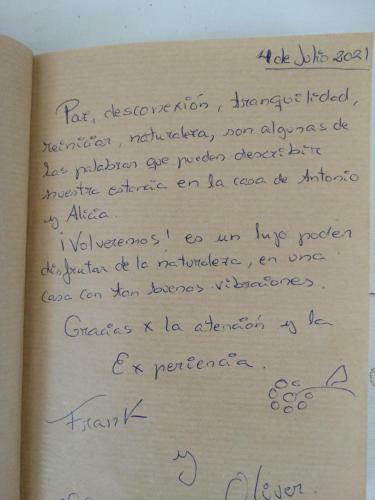 4 de Julio 2021
Paz, desconexión, tranquilidad,
reiniciar, naturaleza, son algunas de
las palabras que pueden describir
nuestra estancia en la casa de Antonio
y Alicia.
¡Volveremos! es un lujo poder
disfrutar de la naturaleza, en una
casa con tan buenas vibraciones.
Gracias x la atención y la
Experiencia.
Frank
y
Oliver.